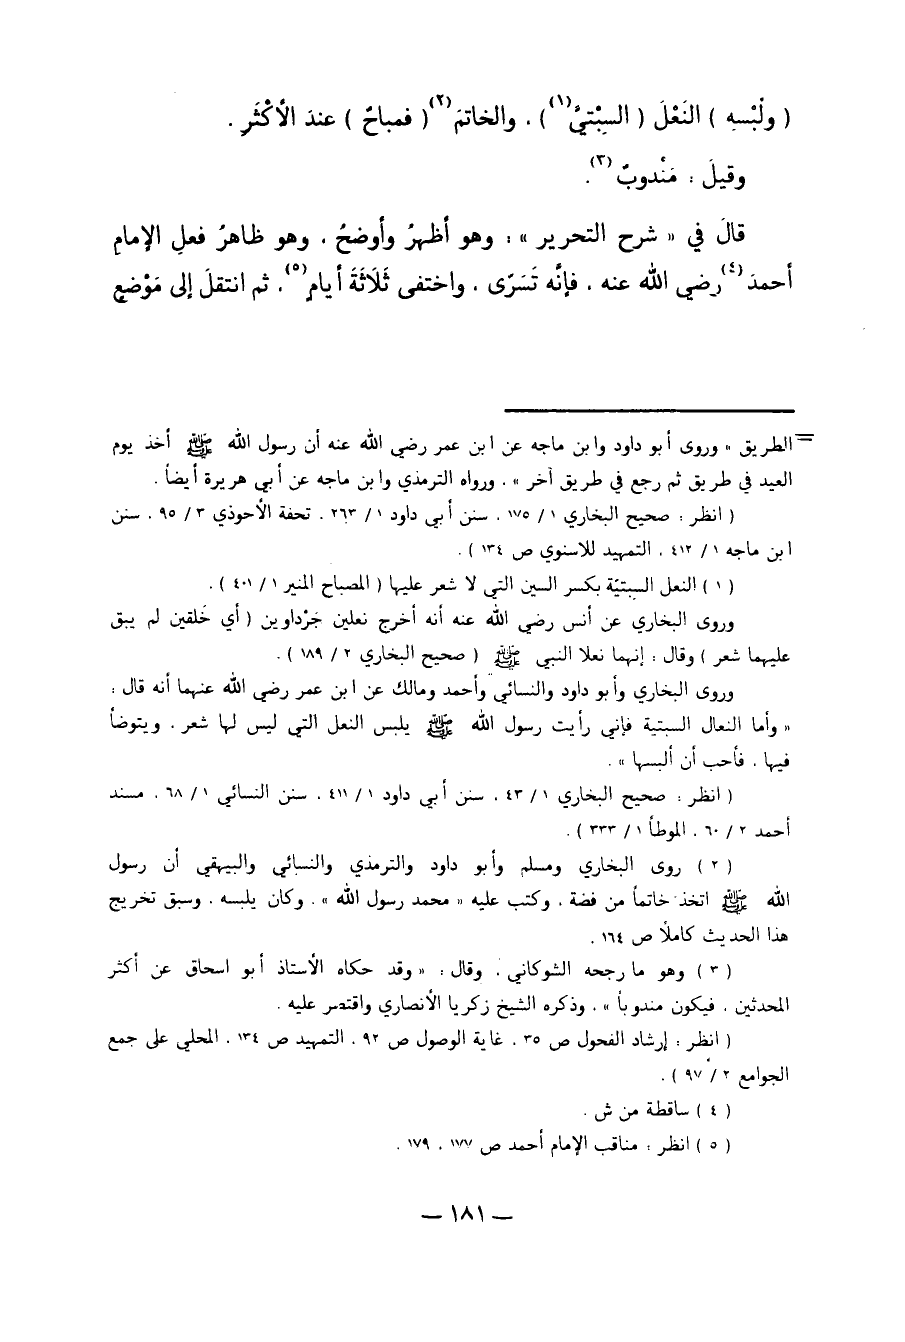 ( ولُبْسه ) النَعْلَ ( السِبْتيَّ(١) ) ، والخاتمَ(٢) ( فمباحٌ ) عندَ الأكْثَرِ .
وقيلَ : مَنْدوبٌ(٣) .
قالَ في « شرح التحرير » : وهو أظهرُ وأوضحُ ، وهو ظاهرُ فعلِ الإمامِ
أحمدَ(٤) رضي الله عنه ، فإنَّه تَسَرّى ، واختفى ثَلَاثَةَ أيامٍ(٥) ، ثم انتقلَ إلى مَوْضعٍ
= الطريق » وروى أبو داود وابن ماجه عن ابن عمر رضي الله عنه أن رسول الله ﷺ أخذ يوم
العيد في طريق ثم رجع في طريق آخر » ، ورواه الترمذي وابن ماجه عن أبي هريرة أيضاً .
( انظر : صحيح البخاري ١ / ١٧٥ ، سنن أبي داود ١ / ٢٦٣ ، تحفة الأحوذي ٣ / ٩٥ ، سنن
ابن ماجه ١ / ٤١٢ ، التمهيد للاسنوي ص ١٣٤ ) .
( ١ ) النعل السبتيّة بكسر السين التي لا شعر عليها ( المصباح المنير ١ / ٤٠١ ) .
وروى البخاري عن أنس رضي الله عنه أنه أخرج نعلين جَرْداوين ( أي خَلقين لم يبق
عليهما شعر ) وقال : إنهما نعلا النبي ﷺ ( صحيح البخاري ٢ / ١٨٩ ) .
وروى البخاري وأبو داود والنسائي وأحمد ومالك عن ابن عمر رضي الله عنهما أنه قال :
« وأما النعال السبتية فإني رأيت رسول الله ﷺ يلبس النعل التي ليس لها شعر ، ويتوضأ
فيها ، فأحب أن ألبسها » .
( انظر : صحيح البخاري ١ / ٤٣ ، سنن أبي داود ١ / ٤١١ ، سنن النسائي ١ / ٦٨ ، مسند
أحمد ٢ / ٦٠ ، الموطأ ١ / ٣٣٣ ) .
( ٢ ) روى البخاري ومسلم وأبو داود والترمذي والنسائي والبيهقي أن رسول
الله ﷺ اتخذ خاتماً من فضة ، وكتب عليه « محمد رسول الله » . وكان يلبسه ، وسبق تخريج
هذا الحديث كاملاً ص ١٦٤ .
( ٣ ) وهو ما رجحه الشوكاني ، وقال : « وقد حكاه الأستاذ أبو اسحاق عن أكثر
المحدثين ، فيكون مندوباً » ، وذكره الشيخ زكريا الأنصاري واقتصر عليه .
( انظر : إرشاد الفحول ص ٣٥ ، غاية الوصول ص ٩٢ ، التمهيد ص ١٣٤ ، المحلي على جمع
الجوامع ٢ / ٩٧ ) .
( ٤ ) ساقطة من ش .
( ٥ ) انظر : مناقب الإمام أحمد ص ١٧٧ ، ١٧٩ .
— ١٨١ —